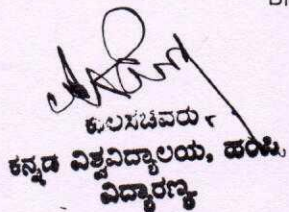 ಕುಲಸಚಿವರು
ಕನ್ನಡ ವಿಶ್ವವಿದ್ಯಾಲಯ, ಹಂಪಿ,
ವಿದ್ಯಾರಣ್ಯ